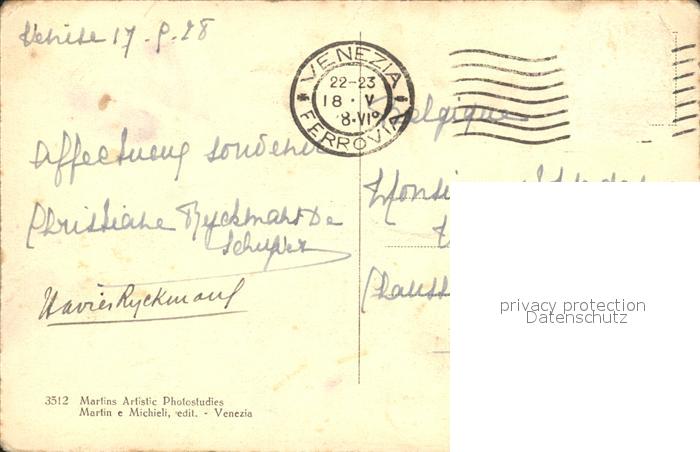 Venise 17-5-28
VENEZIA
22-23
18 · V
8·VIº
FERROVIA
Belgique
Affectueux souvenir
Christiane Ryckmans De
Xavier Ryckmans
privacy protection
Datenschutz
3512 Martins Artistic Photostudies
Martin e Michieli, edit. - Venezia